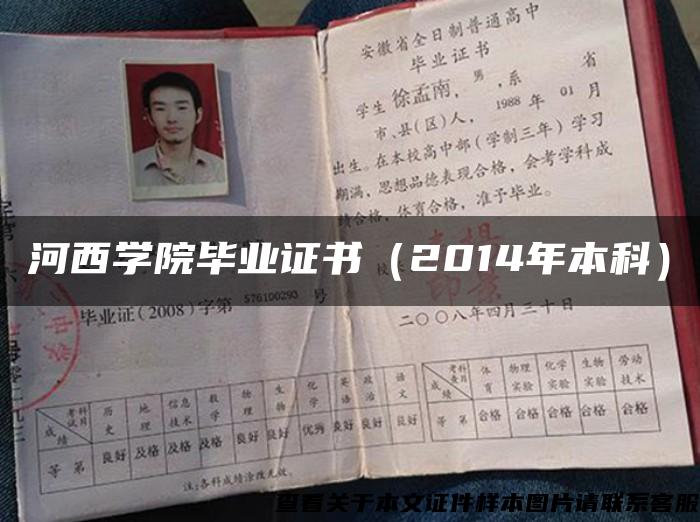 安徽省全日制普通高中
毕业证书
学生徐孟南，男，系 省
市、县(区)人，1988年01月
出生。在本校高中部（学制三年）学习
期满，思想品德表现合格，会考学科成
绩合格，体育合格，准予毕业。
河西学院毕业证书（2014年本科）
毕业证(2008)字第576100293号
二〇〇八年四月三十日
考试科目 历史 地理 信息技术 数学 物理 生物 化学 英语 政治 语文
成绩
等第 良好 及格 及格 及格 良好 良好 优秀 良好 良好 良好
注:各科成绩涂改无效。
考查科目 体育 物理实验 化学实验 生物实验 劳动技术
成绩
等第 合格 合格 合格 合格 合格
查看关于本文证件样本图片请联系客服